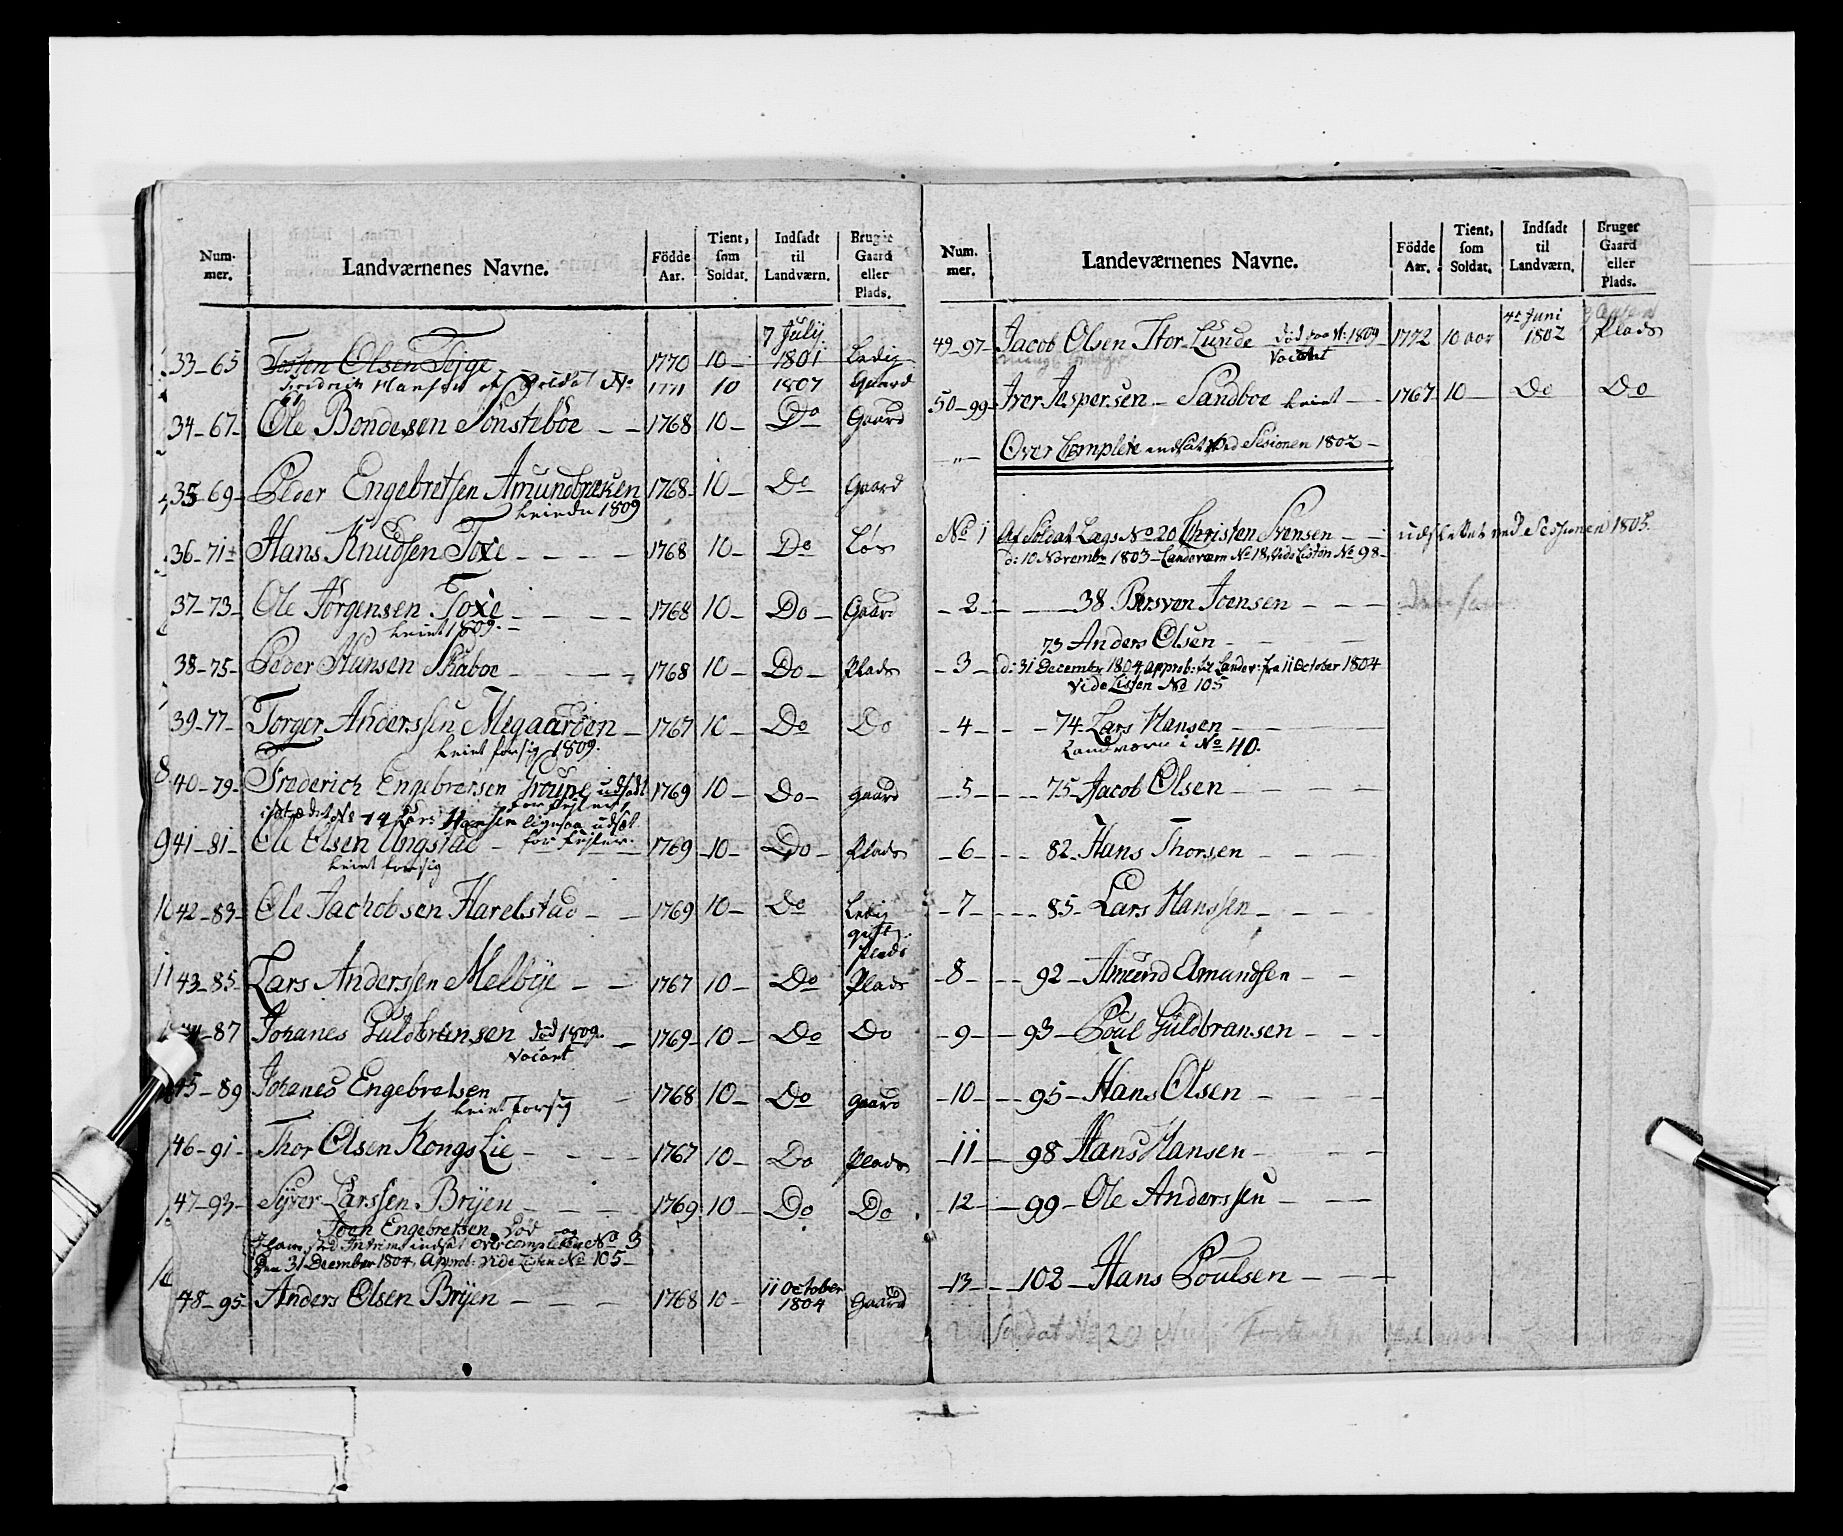 Num-mer. Landværnenes Navne. Födde Aar. Tient, som Soldat. Indsadt til Landværn. Bruger Gaard eller Plads.
33-65 Tosten Olsen 1770 10- 7 July 1801 Ledig
Fredrich Hansen 1771 10 1807 Gaard
34-67- Ole Bondesen Sönsteböe - - 1768 10- Do Gaard
35-69- Peder Engebretsen Amundbreken 1768- 10- Do Gaard
1809
36-71 Hans Knudsen Toxe - - - - 1768 10- Do Løs
37-73- Ole Jörgensen Toxe - - - - 1768 10- Do- Gaard
1809.
38-75- Peder Hansen Skaboe - - - - 1768 10- Do- Plads
39-77- Torger Anderssen Megaarden - 1767 10- Do Do
forsig 1809.
8. 40-79- Frederich Engebretsen udsadt 1769 10- Do- gaard
No 74 Lars Hansen ligesaa udsat
9 41-81- Ole Olsen Ungstad - for 1769 10- Do- Plads
forsig
10 42-83- Ole Jachobsen Harelstad - - 1769 10- Do Ledig
gift
Plads
11 43-85- Lars Anderssen Melbye - - 1767 10- Do Plads
-87 Johanes Guldbransen död 1809. - 1769- 10- Do Do
Vacant
45-89 Johanes Engebretsen - 1768 10- Do gaard
forsig
46-91- Thor Olsen KongsLie - - - 1767 10- Do Plads
47-93- Syver Larssen Bryen - - - 1769 10- Do Do
Joen Engebretsen Död og
indsat overcompletten No 3
Den 31 December 1804, Approb: Vide Listen No 105-
48-95 Anders Olsen Bryen - - - 1768 10- 11 October 1804 Gaard
Num-mer. Landeværnenes Navne. Födde Aar. Tient, som Soldat. Indsadt til Landværn. Bruger Gaard eller Plads.
49-97- Jacob Olsen Stor Lunde Död 1809 1772 10 aar 4de Juni 1802 Plads
Vacant
50-99- Iver Jespersen - Sandboe - - 1767 10- Do Do
-"- Over Complete indsat ved Sesionen 1802-
No 1 Af Soldat Lægs No 20 Christen Svensen - - udslettet ved Sessionen 1805.
d: 10 Novembr 1803- Landeværn No 18, Vide Listen No 98-
-2- - - 38 Joensen - - -
73 Anders Olsen - - - -
-3- d: 31 Decembr 1804, approb: til Landev: fra 11 October 1804
Vide Listen No 105
-4- - - 74- Lars Hansen - - -
Landværn i No 40.
-5- - - - 75- Jacob Olsen - - - -
-6- - - - 82- Hans Thorsen - - -
-7- - - - 85- Lars Hanssen - - - -
-8- - - 92- Amund Amundsen - -
-9- - - 93- Poul Guldbransen - - -
-10- - - 95- Hans Olsen - - - -
-11- - - 98 Hans Hansen - - - -
12- - - 99- Ole Anderssen - - -
-13- - - 102- Hans Poulsen - - -
Soldat No 20